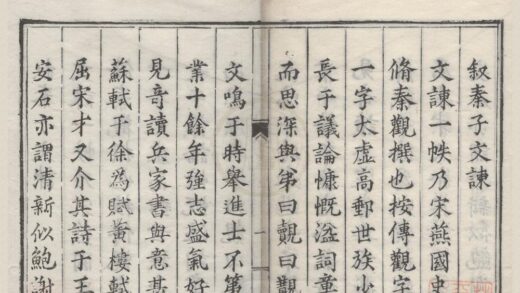 叙秦子文諫
文諫一帙乃宋燕國史
脩秦觀撰也按傳觀字
一字太虛高郵世族少
長于議論慷慨溢詞章
而思深與弟曰覿曰觀
文鳴于時舉進士不第
業十餘年強志盛氣好
見竒讀兵家書與意甚
蘇軾于徐為賦黃樓軾
屈宋才又介其詩于王
安石亦謂清新似鮑謝